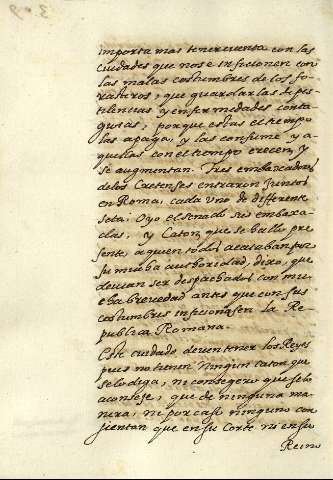 importa mas tener cuenta con las
ciudades que no se inficionen con
las malas costumbres de los fo-
rasteros, que guardar las de pes-
tilencias y enfermedades conta-
giosas, porque estas el tiempo
las apaga, y las consume y a-
quellas con el tiempo crecen, y
se augmentan. Tres embaxadores
delos Caetenses entraron juntos
en Roma, cada uno de differente
seta; Oyo el senado sus embaxa-
das, y Caton, que se hallo pre
sente, a quien todos acataban por
su mucha authoridad, dixo, que
devian ser despachados con mu-
cha brevedad antes que con sus
costumbres inficionasen la Re-
publica Romana.
Este cuidado deven tener los Reyes
pues no tienen ningun caton que
se lo diga, ni consegero que se lo
aconseje, que de ninguna ma-
nera, ni por caso ninguno con
sientan que en su Corte ni en su
Reino